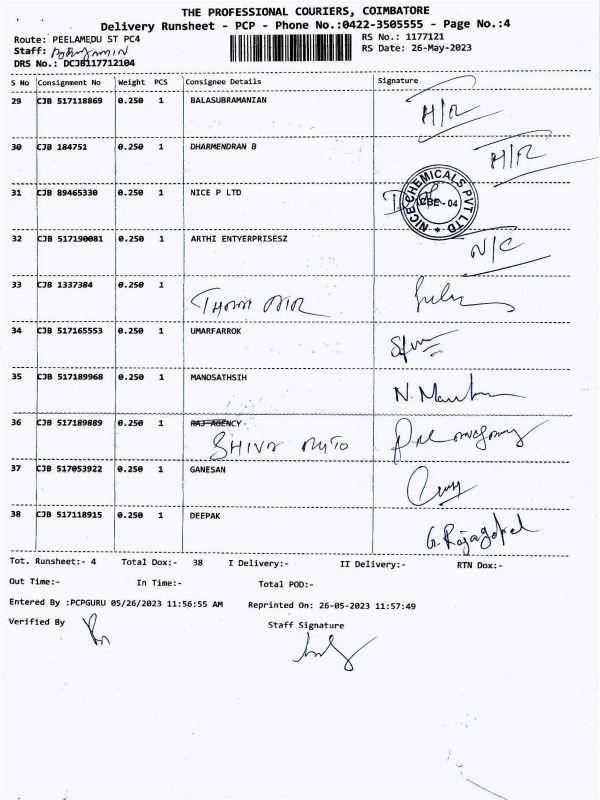 THE PROFESSIONAL COURIERS, COIMBATORE
Delivery Runsheet - PCP - Phone No.:0422-3505555 - Page No.:4
Route: PEELAMEDU ST PC4 RS No.: 1177121
Staff: RS Date: 26-May-2023
DRS No.: DCJB117712104
S No Consignment No Weight PCS Consignee Details Signature
29 CJB 517118869 0.250 1 BALASUBRAMANIAN H/R
30 CJB 184751 0.250 1 DHARMENDRAN B H/R
31 CJB 89465330 0.250 1 NICE P LTD NICE CHEMICALS PVT LTD CBE - 04
32 CJB 517190081 0.250 1 ARTHI ENTYERPRISESZ N/C
33 CJB 1337384 0.250 1
34 CJB 517165553 0.250 1 UMARFARROK
35 CJB 517189968 0.250 1 MANOSATHSIH
36 CJB 517189889 0.250 1 RAJ AGENCY
SHIVA AUTO
37 CJB 517053922 0.250 1 GANESAN
38 CJB 517118915 0.250 1 DEEPAK G. Rajagopal
Tot. Runsheet:- 4 Total Dox:- 38 I Delivery:- II Delivery:- RTN Dox:-
Out Time:- In Time:- Total POD:-
Entered By :PCPGURU 05/26/2023 11:56:55 AM Reprinted On: 26-05-2023 11:57:49
Verified By Staff Signature